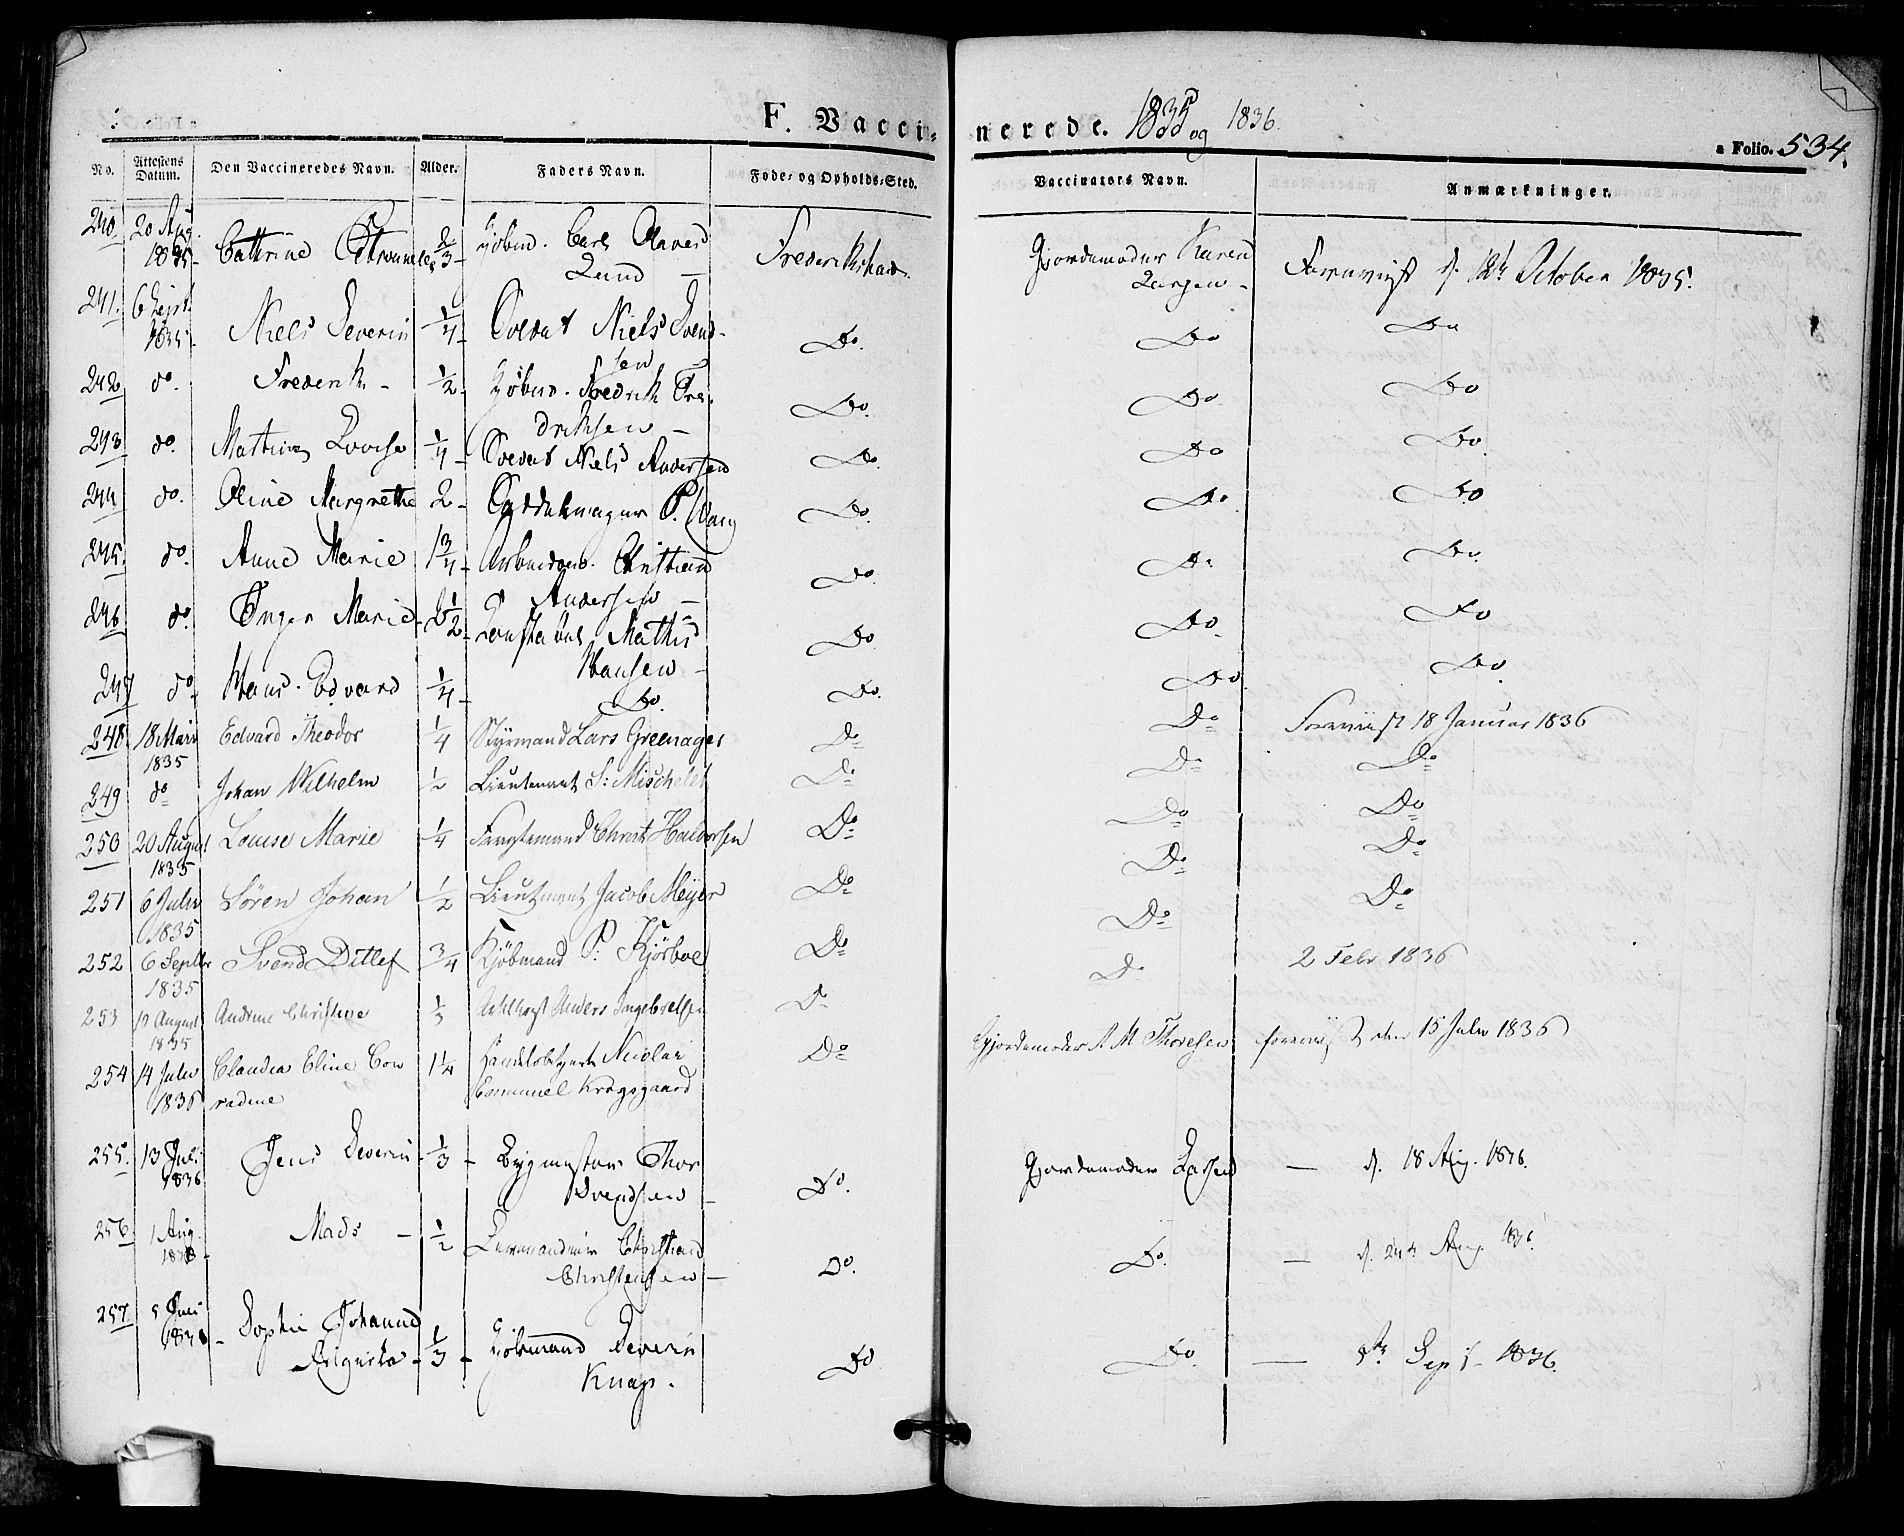 F. Vaccinerede. 1835 og 1836.
a Folio. 534.
No. Attestens Datum. Den Vaccineredes Navn. Alder. Faders Navn. Føde- og Opholds-Sted. Vaccinators Navn. Anmærkninger.
240. 20 Aug. Cathrine 2/3 Kjøbmd. Carl Olaves Frederikshald. Gjordemoder Karen Forevist d. October 1835.
1835 Lund Larsen
241. 6 Sept. Niels Severin 1/4 Niels Svend- Do. Do Do
1835 sen
242 do. Frederik 1/2 Kjøbmd. Fredrik Fre- Do. Do Do
driksen
243 do. Lovise 1/4 Niels Andersen Do. Do Do
244 do. Oline Margrethe 2 P. Do. Do. Do
245. do. Anne Marie 1 3/4 Arbeidsm. Christian Do Do Do
Andersen
246 do. Inger Marie 2 1/2 Mathis Do Do. Do
Hansen
247 do. Hans Edvard 1/4 Do. Do. Do. Do
248 18 Mai Edvard Theodor 1/4 Styrmand Lars Greenager Do Do Forevist 18 Januar 1836
1835
249 do Johan Wilhelm 1/2 Lieutenant S: Mischelet Do Do Do
250 20 August Louise Marie 1/4 Christ Halvorsen Do Do Do
1835
251 6 Julii Sören Johan 1/2 Lieutenant Jacob Meyer Do Do Do
1835
252 6 Septbr Svend Ditlef 3/4 Kjöbmand P: Kjörboe Do Do Do
1835
253 August Andrine Christine 1/3 Anders Ingebretsen Do Do 2 Febr 1836
1835
254 14 Julii Claudia Eline Con 1 1/4 Nicolai Do Gjordemoder A M Thoresen forevist den 15 Julii 1836
1836 radine Emanuel Krogsgaard
255. 13 Juli Jens Severin 1/3 Bygmester Thor Do. Gjordemoder Larsen — d. 18 Aug. 1836.
1836 Svendsen
256 1 Aug. Mads 1/2 Christian Do. Do. — d. 24 Aug. 1836.
Christensen
257. 5 Sophie Johanne
Augusta 1/3 Kjøbmand Severin Do Do. — Sept 1836.
Knap.